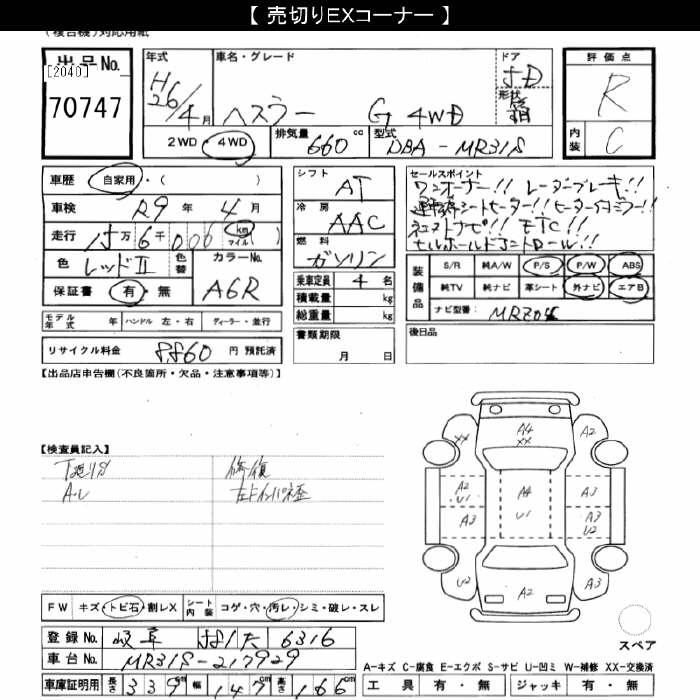 【 売切りEXコーナー 】
(複合機)対応用紙
出品No.
[2040]
70747
年式
H26/4月
車名・グレード
ハスラー G 4WD
ドア
5D
形状
箱
2WD・4WD
排気量 660 cc
型式 DBA-MR31S
評価点
R
内装
C
車歴 自家用・( )
車検 R9 年 4 月
走行 15万 6千 006 km マイル
色 レッドII 色替
カラーNo. A6R
保証書 有・無
シフト
AT
冷房
AAC
燃料
ガソリン
乗車定員 4 名
積載量 kg
総重量 kg
セールスポイント
ワンオーナー!! レーダーブレーキ!!
シートヒーター!!
ETC!!
装備品
S/R 純A/W P/S P/W ABS
純TV 純ナビ 革シート 外ナビ エアB
ナビ型番:
モデル年式 年 ハンドル 左・右 ディーラー・並行
リサイクル料金 8860 円 預託済
書類期限
月 日
後日品
【出品店申告欄(不良箇所・欠品・注意事項等)】
【検査員記入】
修復
FW キズ・トビ石・割レX シート内装 コゲ・穴・汚レ・シミ・破レ・スレ
登録No. 岐阜 581 6316
車台No. MR31S-217929
車庫証明用 長さ 339 cm 幅 147 cm 高さ 166 cm
A4
XX
XX
A2
A2
U1
A4
U1
A3
A3
A3
U2
U2
A2
A3
スペア
A-キズ C-腐食 E-エクボ S-サビ U-凹ミ W-補修 XX-交換済
工具 有・無 ジャッキ 有・無